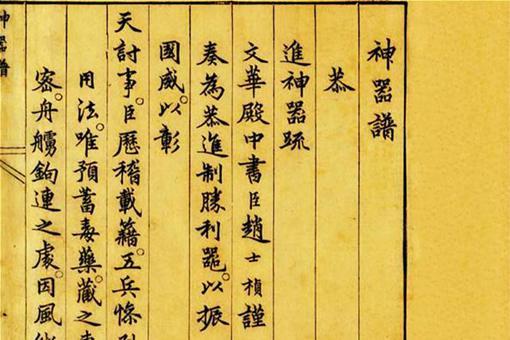 神器譜
恭
進神器疏
文華殿中書臣趙士楨謹
奏為恭進制勝利器。以振
國威。以彰
天討事。臣歷稽載籍。五兵條
用法。唯預蓄毒藥。藏之
密。舟艣鉤連之處。因風
神器譜